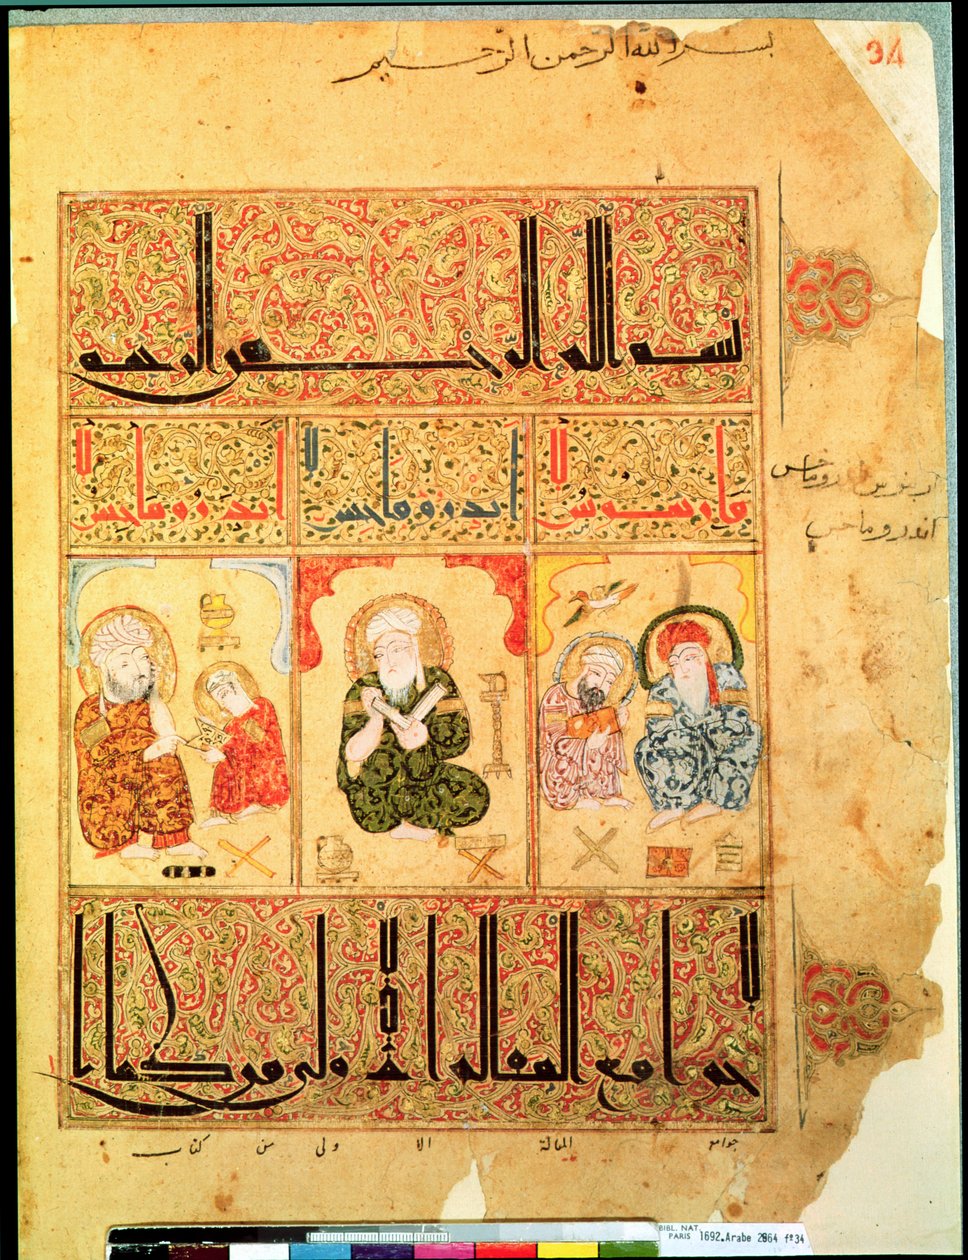 34
بسم الله الرحمن الرحيم
بسم الله الرحمن الرحيم
اندروماخس اندروماخس
اندروماخس
اندروماخس
جوامع المقالة الاولى من كتاب
جوامع المقالة الا ولى من كتاب
BIBL. NAT.
PARIS 1692.Arabe 2864 fº34